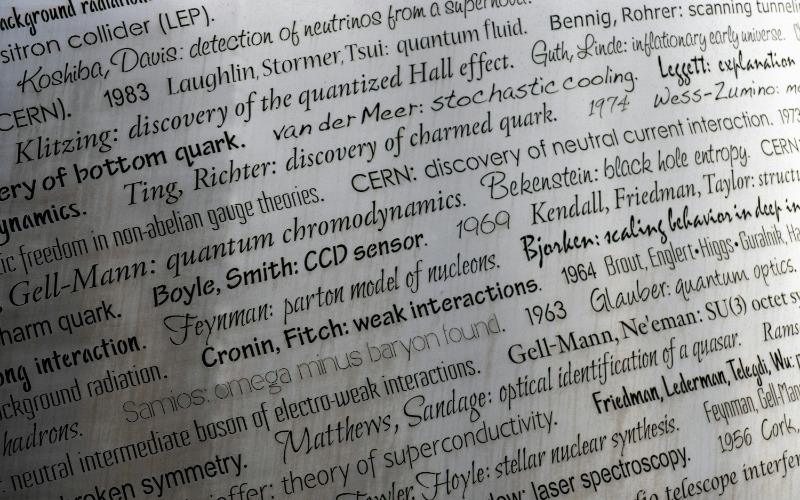 background radiation
sitron collider (LEP).
Koshiba, Davis: detection of neutrinos from a supernova.
CERN). 1983 Laughlin, Stormer, Tsui: quantum fluid. Bennig, Rohrer: scanning tunneli
Klitzing: discovery of the quantized Hall effect. Guth, Linde: inflationary early universe.
ery of bottom quark. van der Meer: stochastic cooling. Leggett: explanation
ynamics. Ting, Richter: discovery of charmed quark. 1974 Wess-Zumino: mo
ic freedom in non-abelian gauge theories. CERN: discovery of neutral current interaction. 1973
, Gell-Mann: quantum chromodynamics. Bekenstein: black hole entropy. CERN:
harm quark. Boyle, Smith: CCD sensor. 1969 Kendall, Friedman, Taylor: structu
ong interaction. Feynman: parton model of nucleons. Bjorken: scaling behavior in deep in
ckground radiation. Cronin, Fitch: weak interactions. 1964 Brout, Englert•Higgs•Guralnik, Ha
hadrons. Samios: omega minus baryon found. 1963 Glauber: quantum optics.
neutral intermediate boson of electro-weak interactions. Gell-Mann, Ne'eman: SU(3) octet sy
oken symmetry. Matthews, Sandage: optical identification of a quasar. Rams
offer: theory of superconductivity. Friedman, Lederman, Telegdi, Wu: p
Fowler, Hoyle: stellar nuclear synthesis. Feynman, Gell-Man
low: laser spectroscopy. 1956 Cork,
dio telescope interfer